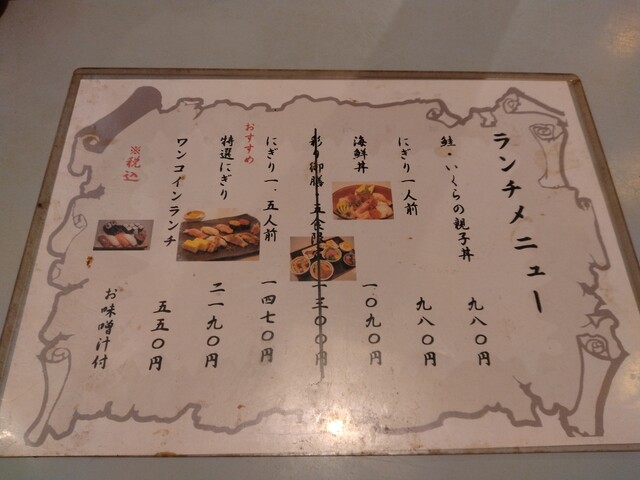 ランチメニュー
鮭・いくらの親子丼 九八〇円
にぎり一人前 九八〇円
海鮮丼 一〇九〇円
彩り御膳・五食限定 一三〇〇円
にぎり一、五人前 一四七〇円
おすすめ
特選にぎり 二一九〇円
ワンコインランチ 五五〇円
※税込
お味噌汁付